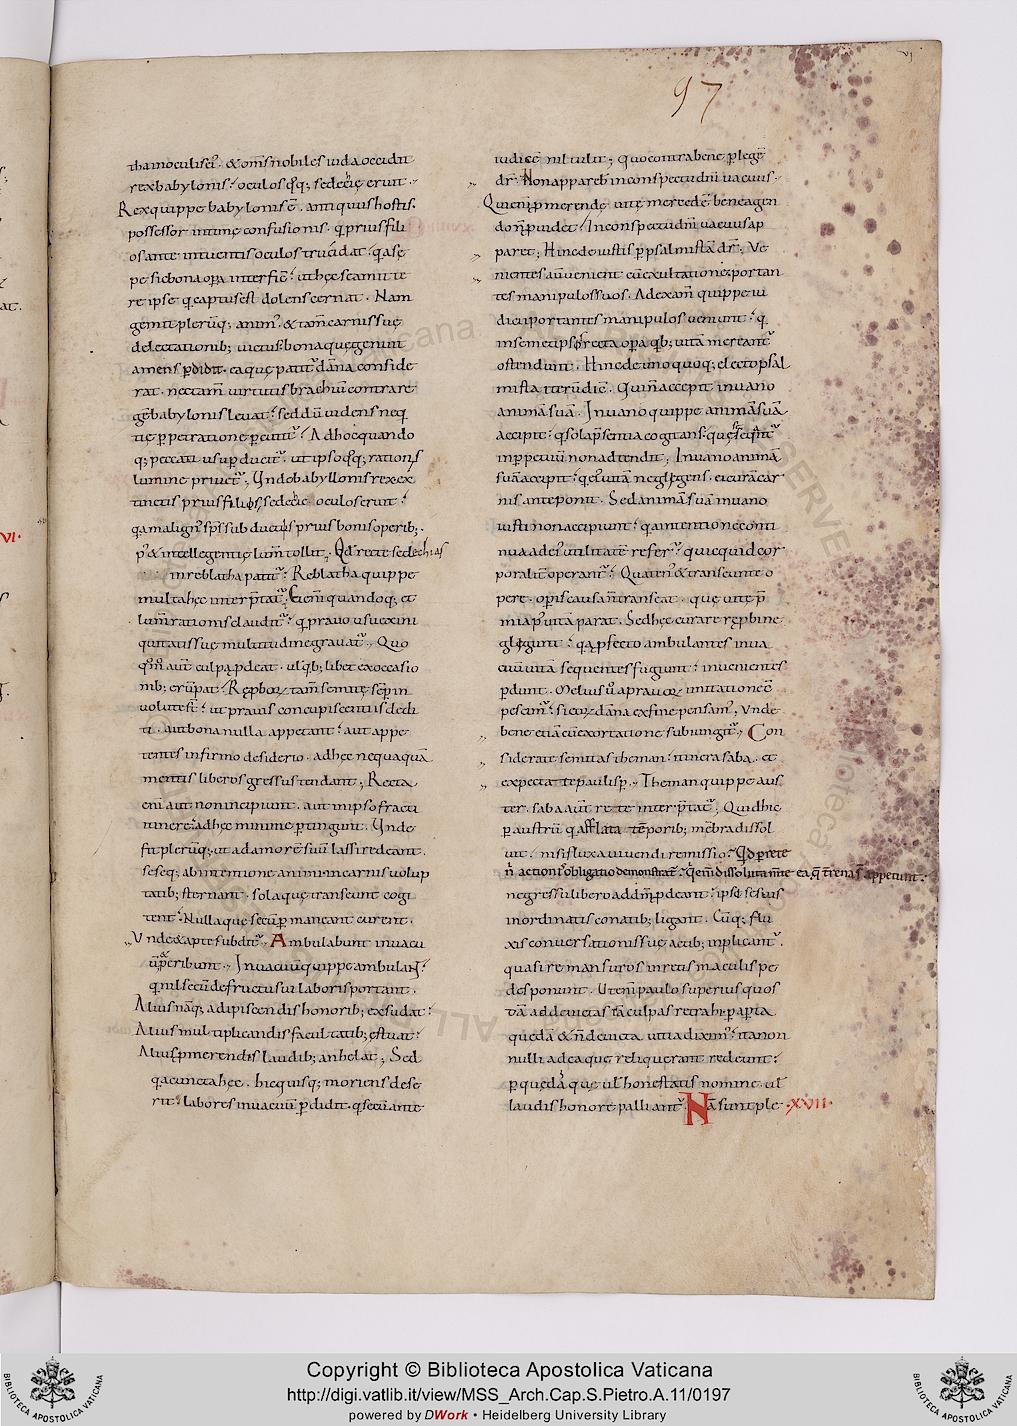 97
tha in oculis ei᷒. & om̅s nobiles iuda occidit
rex babylonis. oculos q̅q; sedechie eruit.
Rex quippe babylonis ē. antiquus hostis.
possessor intime confusionis. q̅ prius fili
os ante intuentis oculos trucidat. q̅a sę
pe sic bona opa interficit. ut hęc se amitte
re ipse q̅ captus est dolens cernat. Nam
gemit pleru̅q; anim᷒. & tam̅ carnis suę
delectationib; uictus. bona quę genuit
amens pdidit. ea quę patit᷒ da̅na conside
rat. nec tam̅ uirtutis brachiu̅ contra re
ge̅ babylonis leuat. sed du̅ uidens neq
tię ppetratione pcutit᷒. Ad hoc quando
q; peccati usu pducit᷒. ut ipso q̅q; rationis
lumine priuet᷒. Unde babylonis rex ex
tinctis prius filiis. sedechie oculos eruit.
q̅a malign᷒ sp̅s subductis prius bonis operib;.
p᷒ & intellegentię lum̅ tollit. Qd̅ recte sedechias
in reblatha patit᷒. Reblatha quippe
multa hęc interp̅tat᷒. Ei eni̅ quandoq; et
lum̅ rationis claudit᷒. q̅ prauo usu ex ini
quitatis suę multitudine grauat᷒. Quo
q᷒m̅ aut̅ culpa pdeat. ul̅ q̅b; libet ex occasio
nib; eru̅pat. Reproboꝝ tam̅ semitę sep in
uolutę st̅. ut prauis concupiscentiis dedi
ti. aut bona nulla appetant. aut appe
tentes infirmo desiderio. ad hec nequaqua̅
mentis liberos gressus tendant. Recta
eni̅ aut non incipiunt. aut in ipso fracti
itinere. ad hęc minime ptingunt. Unde
fit pleru̅q; ut ad amore̅ suu̅ lassi redeant.
seseq; ab intentione animi in carnis uolup
tatib; sternant. sola que transeunt cogi
tent. Nulla que secu̅ pmaneant curent.
Unde & apte subdit᷒. Ambulabunt in uacu
u̅. & peribunt. In uacuu̅ quippe ambulant.
q̅ nil secu̅ de fructu sui laboris portant.
Alius na̅q; adipiscendis honorib; exsudat.
Alius multiplicandis facultatib; ęstuat.
Alius pmerendis laudib; anhelat. Sed
q̅a cuncta hęc. hic quisq; moriens dese
rit. labores in uacuu̅ pdidit. q̅ secu̅ ante
iudice̅ nil tulit. quo contra bene p lege̅
dr̅. Non apparebis in conspectu dn̅i uacuus.
Qui eni̅ pmerendę uitę mercede̅ bene agen
do n̅ puidet. In conspectu dn̅i uacuus ap
paret. Hinc de iustis p psalmista̅ dr̅. Ve
nientes au̅ uenient cu̅ exultatione portan
tes manipulos suos. Ad exam̅ quippe iu
dicii portantes manipulos ueniunt. q̅
in semetipsis recta opa q̅b; uita̅ mereant᷒
ostendunt. Hinc de uno quoq; electo psal
mista iteru̅ dic̅. Qui n̅ accepit in uano
anima̅ sua̅. In uano quippe anima̅ sua̅
accipit. q̅ sola psentia cogitans. quę secunt᷒
in ppetuu̅ non adtendit. In uano anima̅
sua̅ accipit. q̅ ei᷒ uita̅ neglegens. ei cura̅ car
nis anteponit. Sed anima̅ sua̅ in uano
iusti non accipiunt. q̅a intentione conti
nua ad ei᷒ utilitate̅ refer᷒. quicquid cor
poralit̅ operant᷒. Quaten᷒ & transeunte o
pere. opis causa n̅ transeat. quę uitę p̅
mia p᷒ uita̅ parat. Sed hęc curare reprobi ne
glegunt. q̅a pfecto ambulantes in ua
cuu̅ uita̅ sequentes fugiunt. inuenientes
pdunt. Melius u̅ a prauoꝝ imitatione ē
pescim᷒. si eoꝝ da̅na ex fine pensam᷒. Unde
bene etia̅ cu̅ exortatione subiungit᷒. Con
siderate semitas theman. itinera saba. et
expectate paulisp. Theman quippe aus
ter. saba au̅ rete interp̅tat᷒. Quid hic
p austru̅ q̅ afflata te̅porib; me̅bra dissol
uit. nisi fluxa uiuendi remissio. Qd̅ p rete
n̅ actionis obligatio demonstrat᷒. Q̅ eni̅ dissoluta m̅te ea q̅ t̅rena s̅ appetunt.
ne gressu libero ad d̅m pdeant. ipsi se suis
inordinatis conatib; ligant. Cu̅q; flu
xis conuersationis suę actib; inplicant᷒.
quasi remansuros in retis maculis pe
des ponunt. Ut eni̅ paulo superius quos
da̅ ad deuictas ia̅ culpas retrahi p apta
queda̅ & n̅ deuicta uitia dixim᷒. ita non
nulli ad ea que reliquerant redeunt.
p queda̅ quę ul̅ honestatis nomine. ul̅
laudis honore palliant᷒. Na̅ sunt ple
·XXVII·
Copyright © Biblioteca Apostolica Vaticana
http://digi.vatlib.it/view/MSS_Arch.Cap.S.Pietro.A.11/0197
powered by DWork • Heidelberg University Library